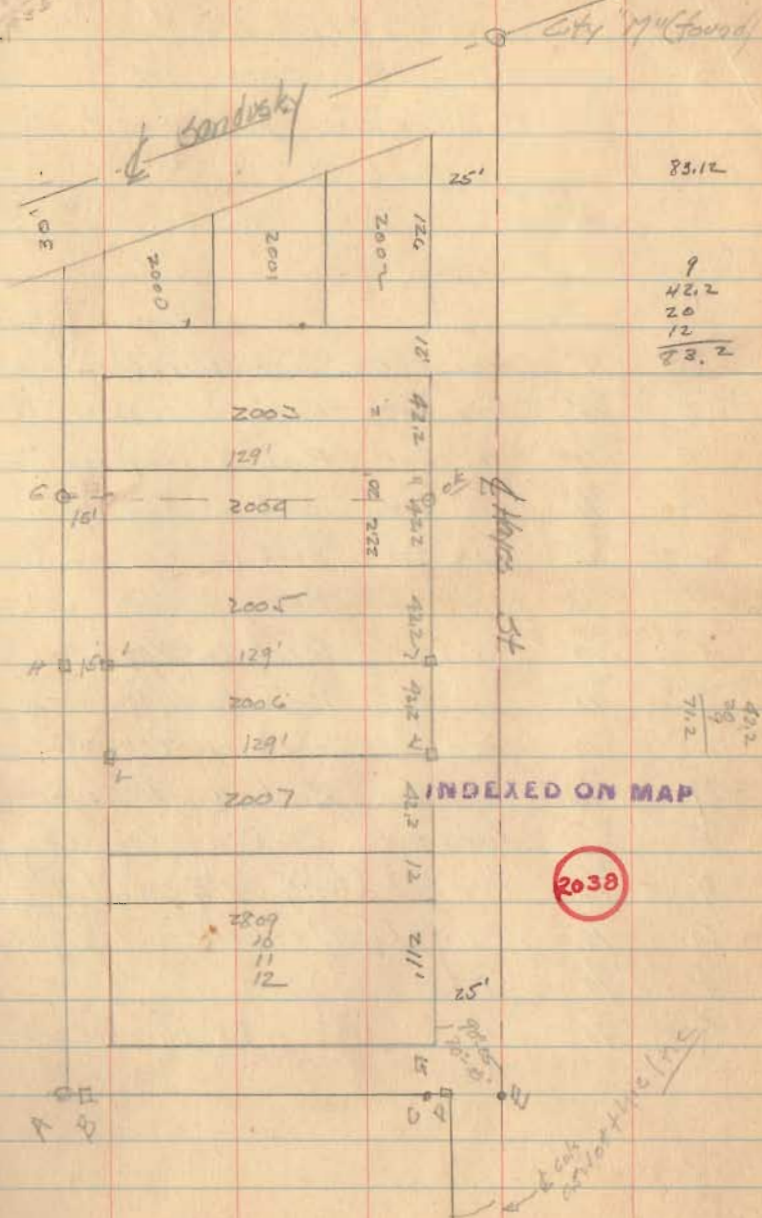 City "M" (found)
℄ Sandusky
25'
83.12
30'
126
2002
2001
2000
9
42.2
20
12
83.2
12'
2003
42.2
129'
G
15'
2004
42.2
20'
222
℄ Hayes St
2005
42.2
H
15'
129'
2006
42.2
129'
42.2
20
9
71.2
2007
42.2
INDEXED ON MAP
12
2038
2809
10
11
12
211'
25'
15
A
B